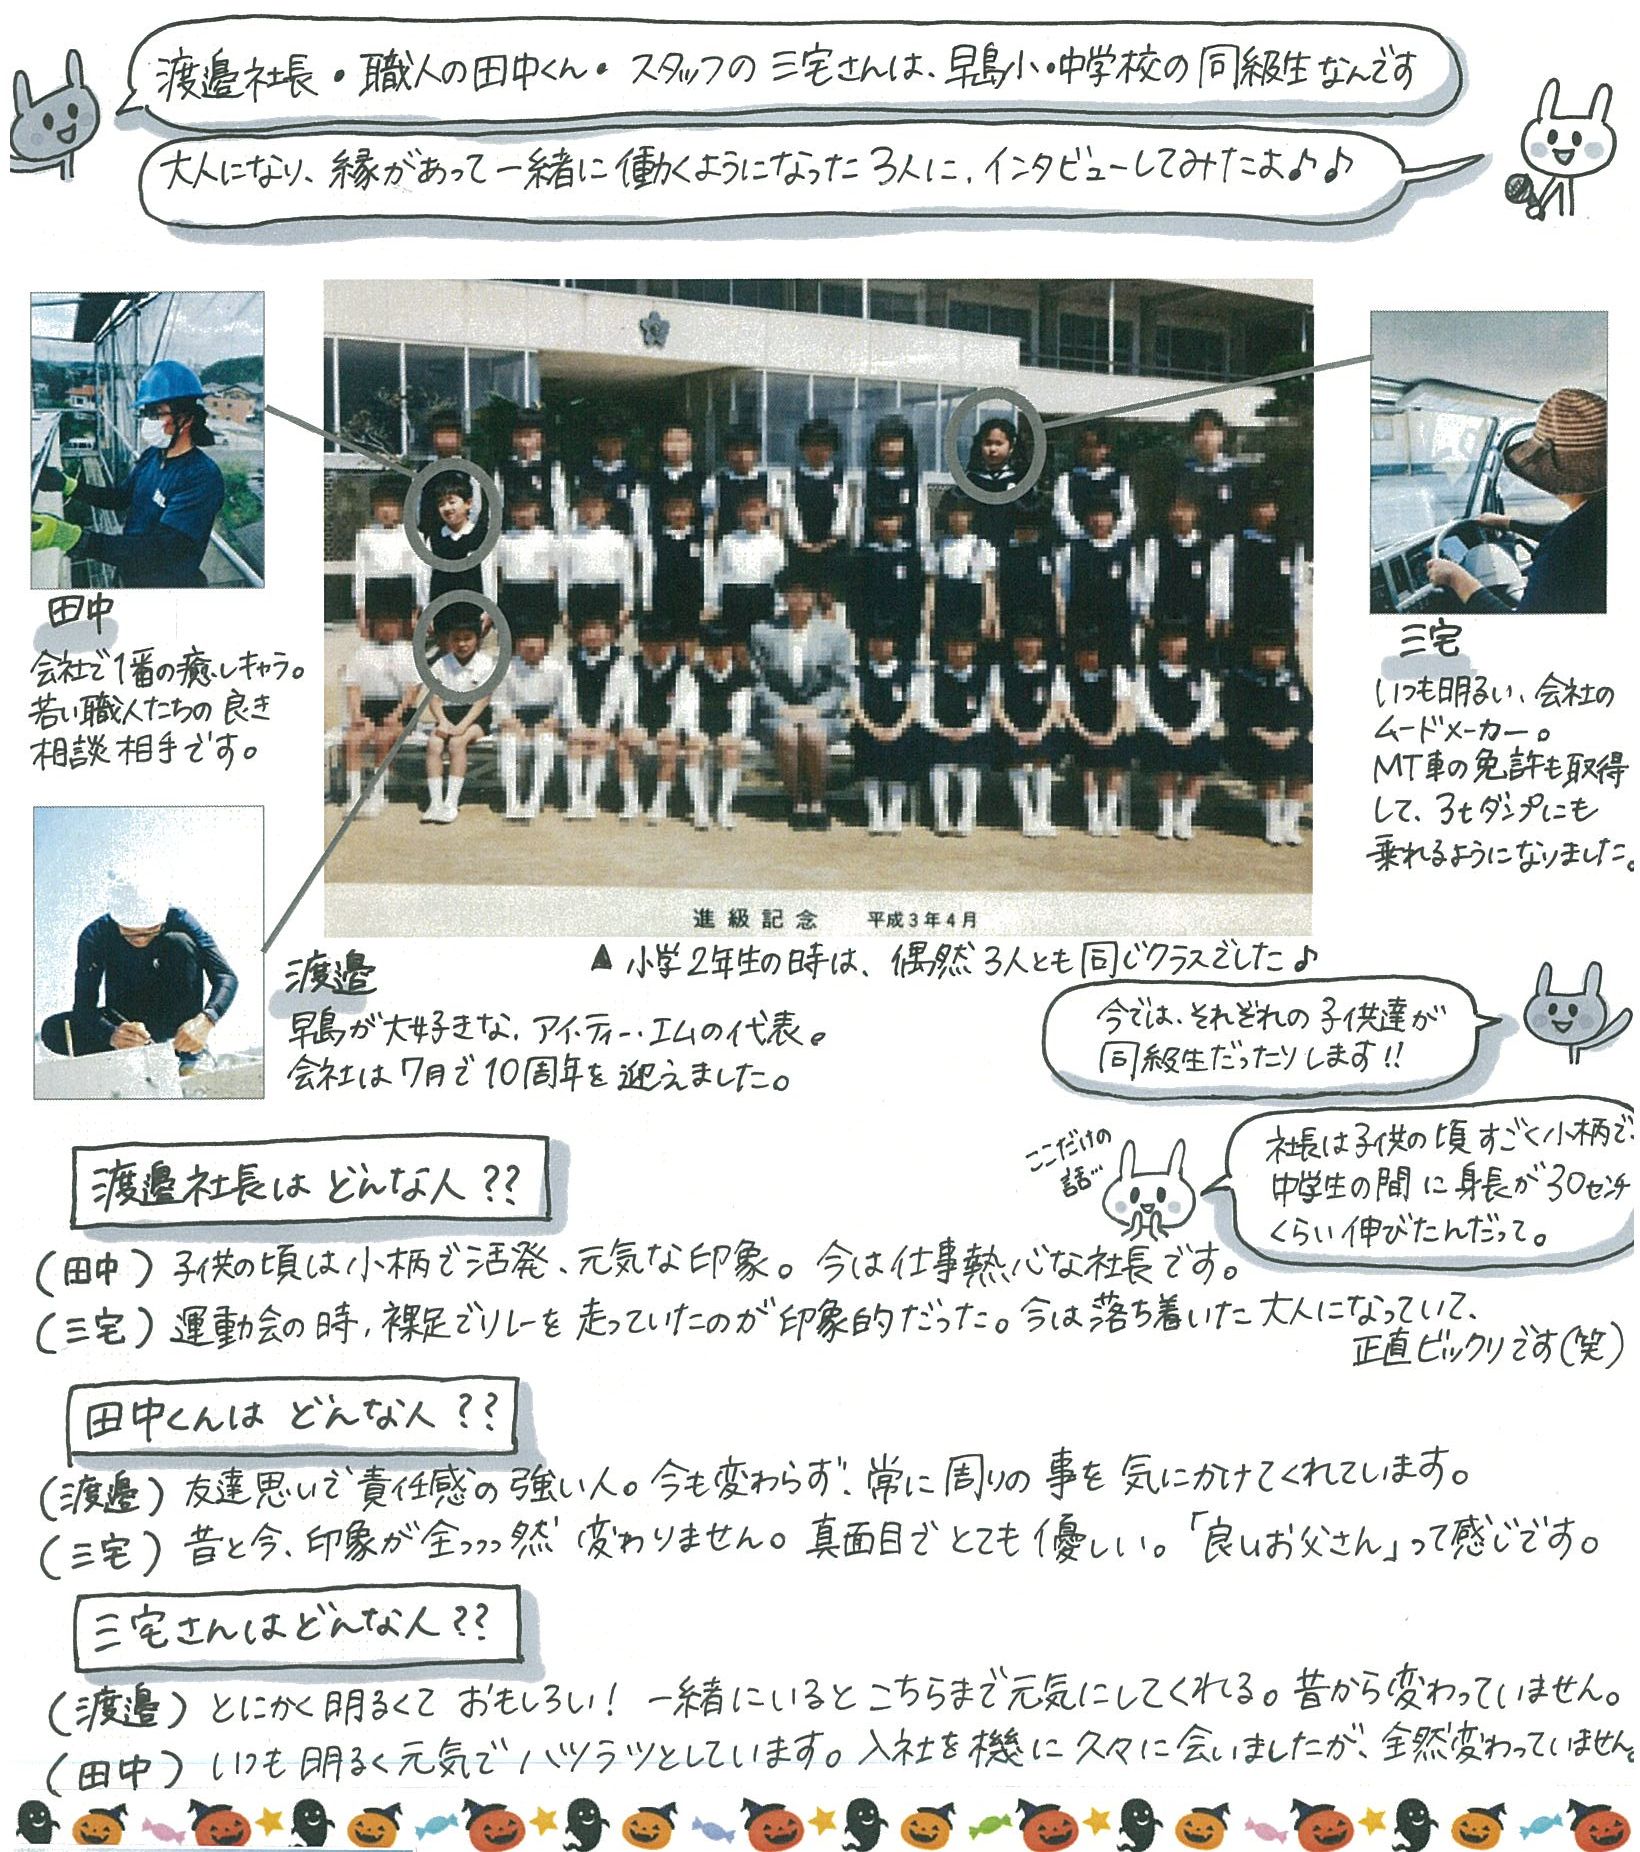 渡邉社長・職人の田中くん・スタッフの三宅さんは、早島小・中学校の同級生なんです
大人になり、縁があって一緒に働くようになった3人に、インタビューしてみたよ♪♪
田中
会社で1番の癒しキャラ。
若い職人たちの良き
相談相手です。
三宅
いつも明るい、会社の
ムードメーカー。
MT車の免許も取得
して、3tダンプにも
乗れるようになりました。
進級記念 平成3年4月
▲小学2年生の時は、偶然3人とも同じクラスでした♪
渡邉
早島が大好きな、アイ・ティー・エムの代表。
会社は7月で10周年を迎えました。
今では、それぞれの子供達が
同級生だったりします!!
ここだけの
話…
社長は子供の頃すごく小柄で、
中学生の間に身長が30センチ
くらい伸びたんだって。
渡邉社長はどんな人??
(田中)子供の頃は小柄で活発、元気な印象。今は仕事熱心な社長です。
(三宅)運動会の時、裸足でリレーを走っていたのが印象的だった。今は落ち着いた大人になっていて、
正直ビックリです(笑)
田中くんはどんな人??
(渡邉)友達思いで責任感の強い人。今も変わらず、常に周りの事を気にかけてくれています。
(三宅)昔と今、印象が全っっっ然変わりません。真面目でとても優しい。「良いお父さん」って感じです。
三宅さんはどんな人??
(渡邉)とにかく明るくておもしろい!一緒にいるとこちらまで元気にしてくれる。昔から変わっていません。
(田中)いつも明るく元気でハツラツとしています。入社を機に久々に会いましたが、全然変わっていません。